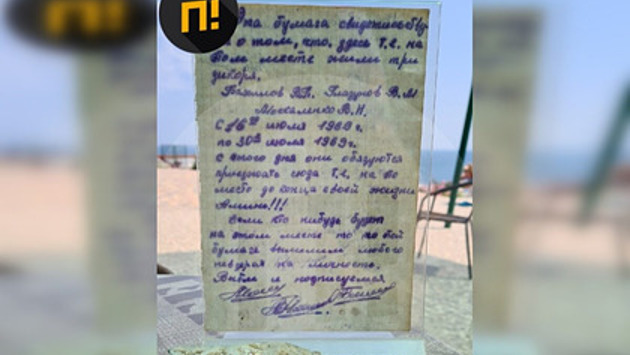 П!
Эта бумага свидетельству
ет о том, что, здесь т.е. на
этом месте жили три
дикаря.
В.П. Глазунов В.М
Москаленко В.И.
С 16го июля 1969 г.
по 30го июля 1969 г.
с этого дня они обязуются
приезжать сюда т.е. на это
место до конца своей жизни
Аминь!!!
Если кто нибудь будет
на этом месте то по этой
бумаге выметим любого
невзирая на личность.
и подписуемся